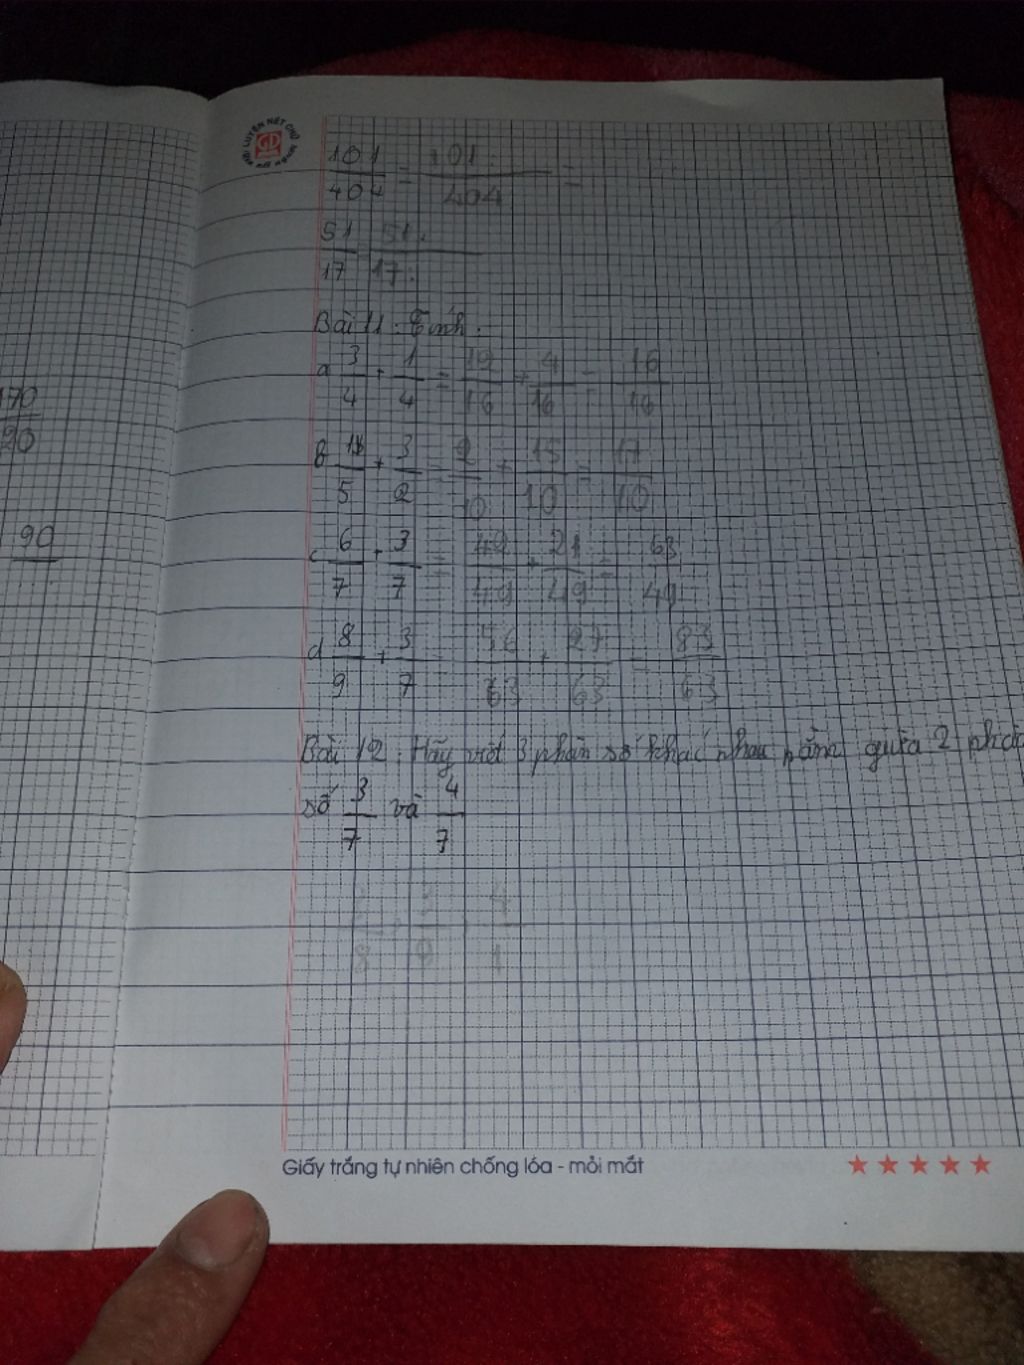 LUYỆN NÉT CHỮ
GD
170
20
90
101/404 = 101:/404 =
51/17 51:/17:
Bài 11: Tính.
a 3/4 + 1/4 = 12/16 + 4/16 = 16/16
b 1/5 + 3/2 = 2/10 + 15/10 = 17/10
c 6/7 + 3/7 = 42/49 + 21/49 = 63/49
d 8/9 + 3/7 = 56/63 + 27/63 = 83/63
Bài 12: Hãy viết 3 phân số khác nhau nằm giữa 2 phân
số 3/7 và 4/7
Giấy trắng tự nhiên chống lóa - mỏi mắt